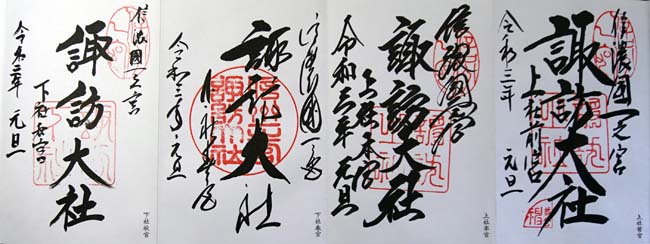 信濃國一之宮
諏訪大社
上社前宮
令和三年 元旦
上社前宮
信濃國一之宮
諏訪大社
上社本宮
令和三年 元旦
上社本宮
信濃國一之宮
諏訪大社
下社春宮
令和三年 元旦
下社春宮
信濃國一之宮
諏訪大社
下社秋宮
令和三年 元旦
下社秋宮